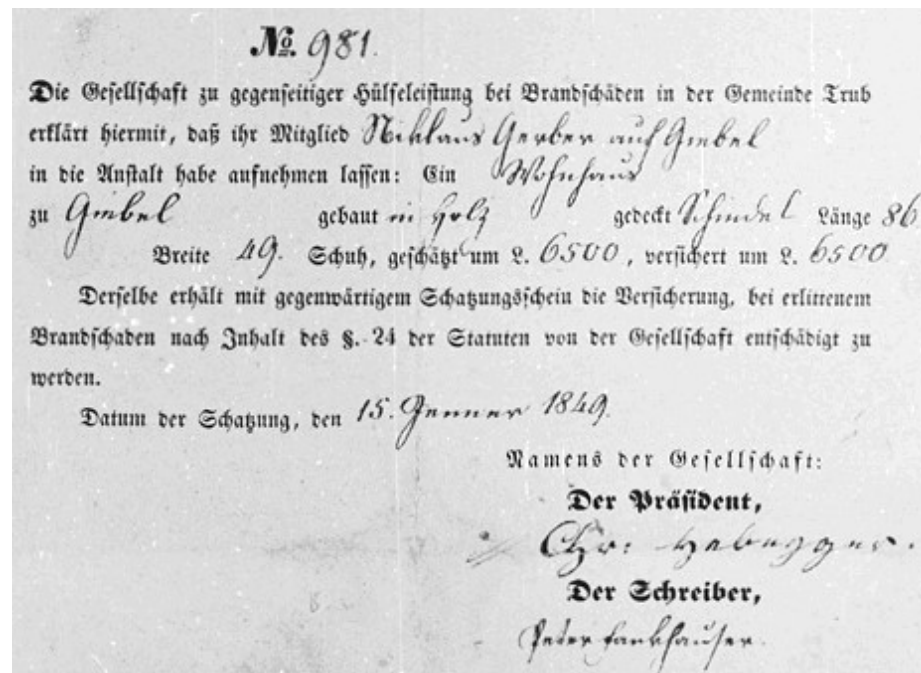 No. 981.
Die Gesellschaft zu gegenseitiger Hülfeleistung bei Brandschäden in der Gemeinde Trub
erklärt hiermit, daß ihr Mitglied Niklaus Gerber auf Gmbel
in die Anstalt habe aufnehmen lassen: Ein Wohnhaus
zu Gmbel gebaut in Holz gedeckt Schindel Länge 86
Breite 49. Schuh, geschätzt um L. 6500, versichert um L. 6500
Derselbe erhält mit gegenwärtigem Schatzungsschein die Versicherung, bei erlittenem
Brandschaden nach Inhalt des §. 24 der Statuten von der Gesellschaft entschädigt zu
werden.
Datum der Schatzung, den 15. Jenner 1849.
Namens der Gesellschaft:
Der Präsident,
Chr. Habegger.
Der Schreiber,
Peter Fankhauser.